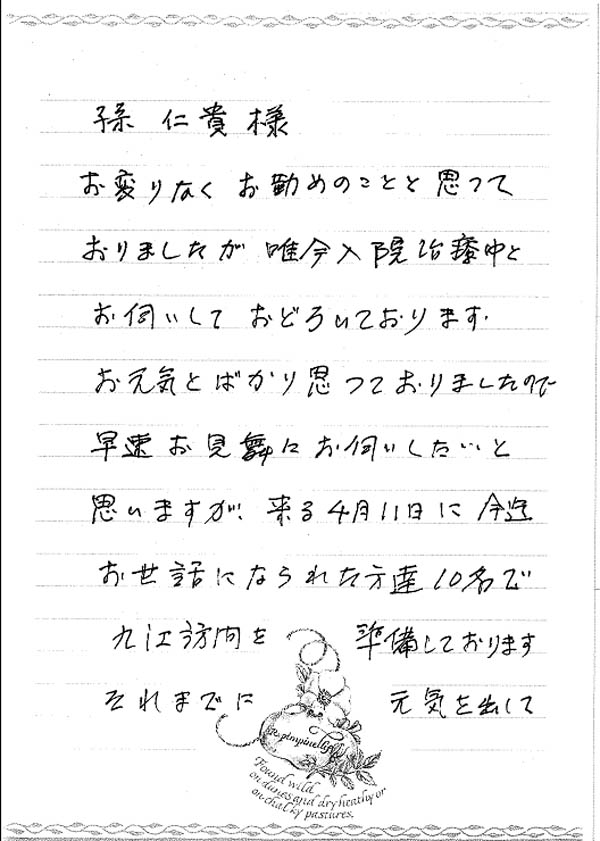 孫 仁貴 様
お変りなく お勤めのことと思って
おりましたが 唯今入院治療中と
お伺いして おどろいております.
お元気とばかり思っておりましたので
早速お見舞にお伺いしたいと
思いますが、来る4月11日に 今迄
お世話になられた方達10名で
九江訪問を 準備しております
それまでに 元気を出して
R. pimpinellifolia
Found wild
on dunes and dry heathy or
on chalky pastures.